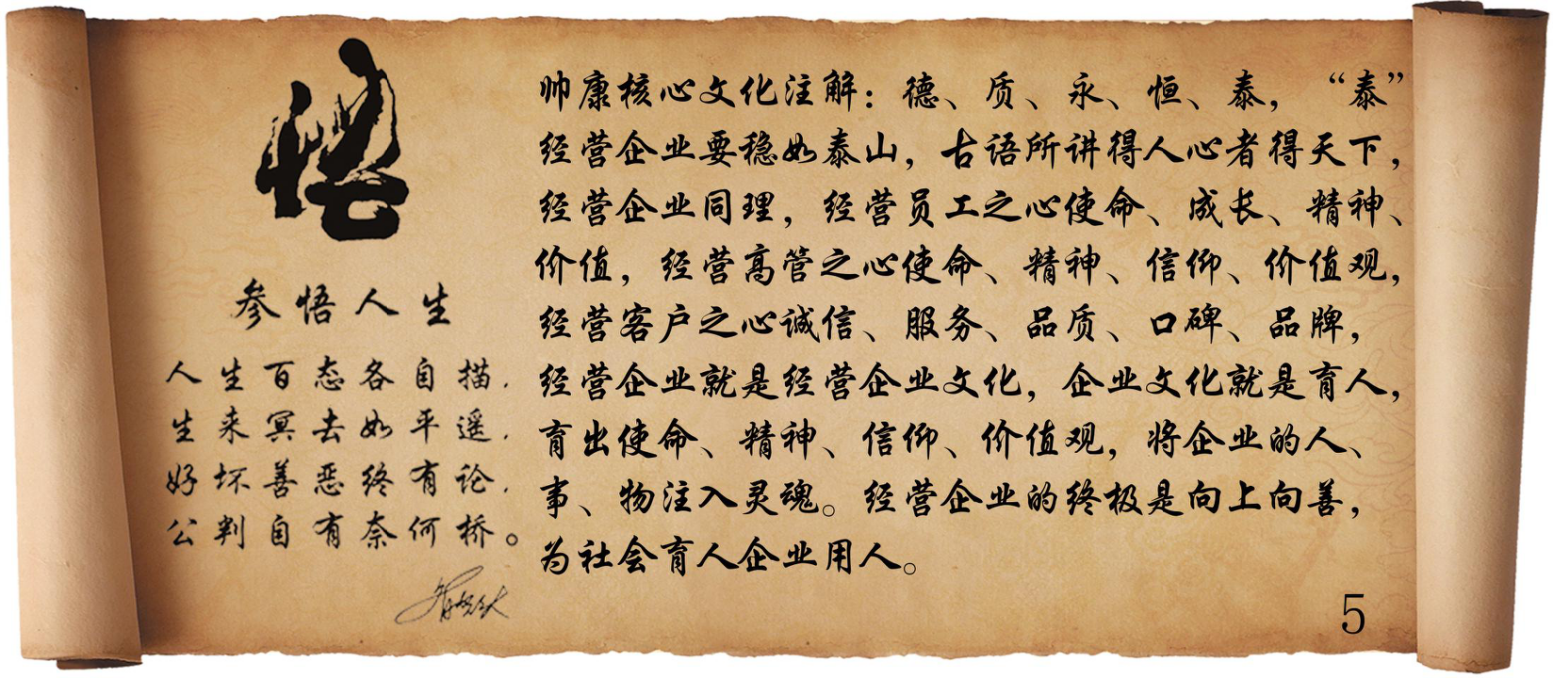 悟
参悟人生
人生百态各自描.
生来冥去如平遥.
好坏善恶终有论.
公判自有奈何桥。
帅康核心文化注解：德、质、永、恒、泰，“泰”
经营企业要稳如泰山，古语所讲得人心者得天下，
经营企业同理，经营员工之心使命、成长、精神、
价值，经营高管之心使命、精神、信仰、价值观，
经营客户之心诚信、服务、品质、口碑、品牌，
经营企业就是经营企业文化，企业文化就是育人，
育出使命、精神、信仰、价值观，将企业的人、
事、物注入灵魂。经营企业的终极是向上向善，
为社会育人企业用人。
5